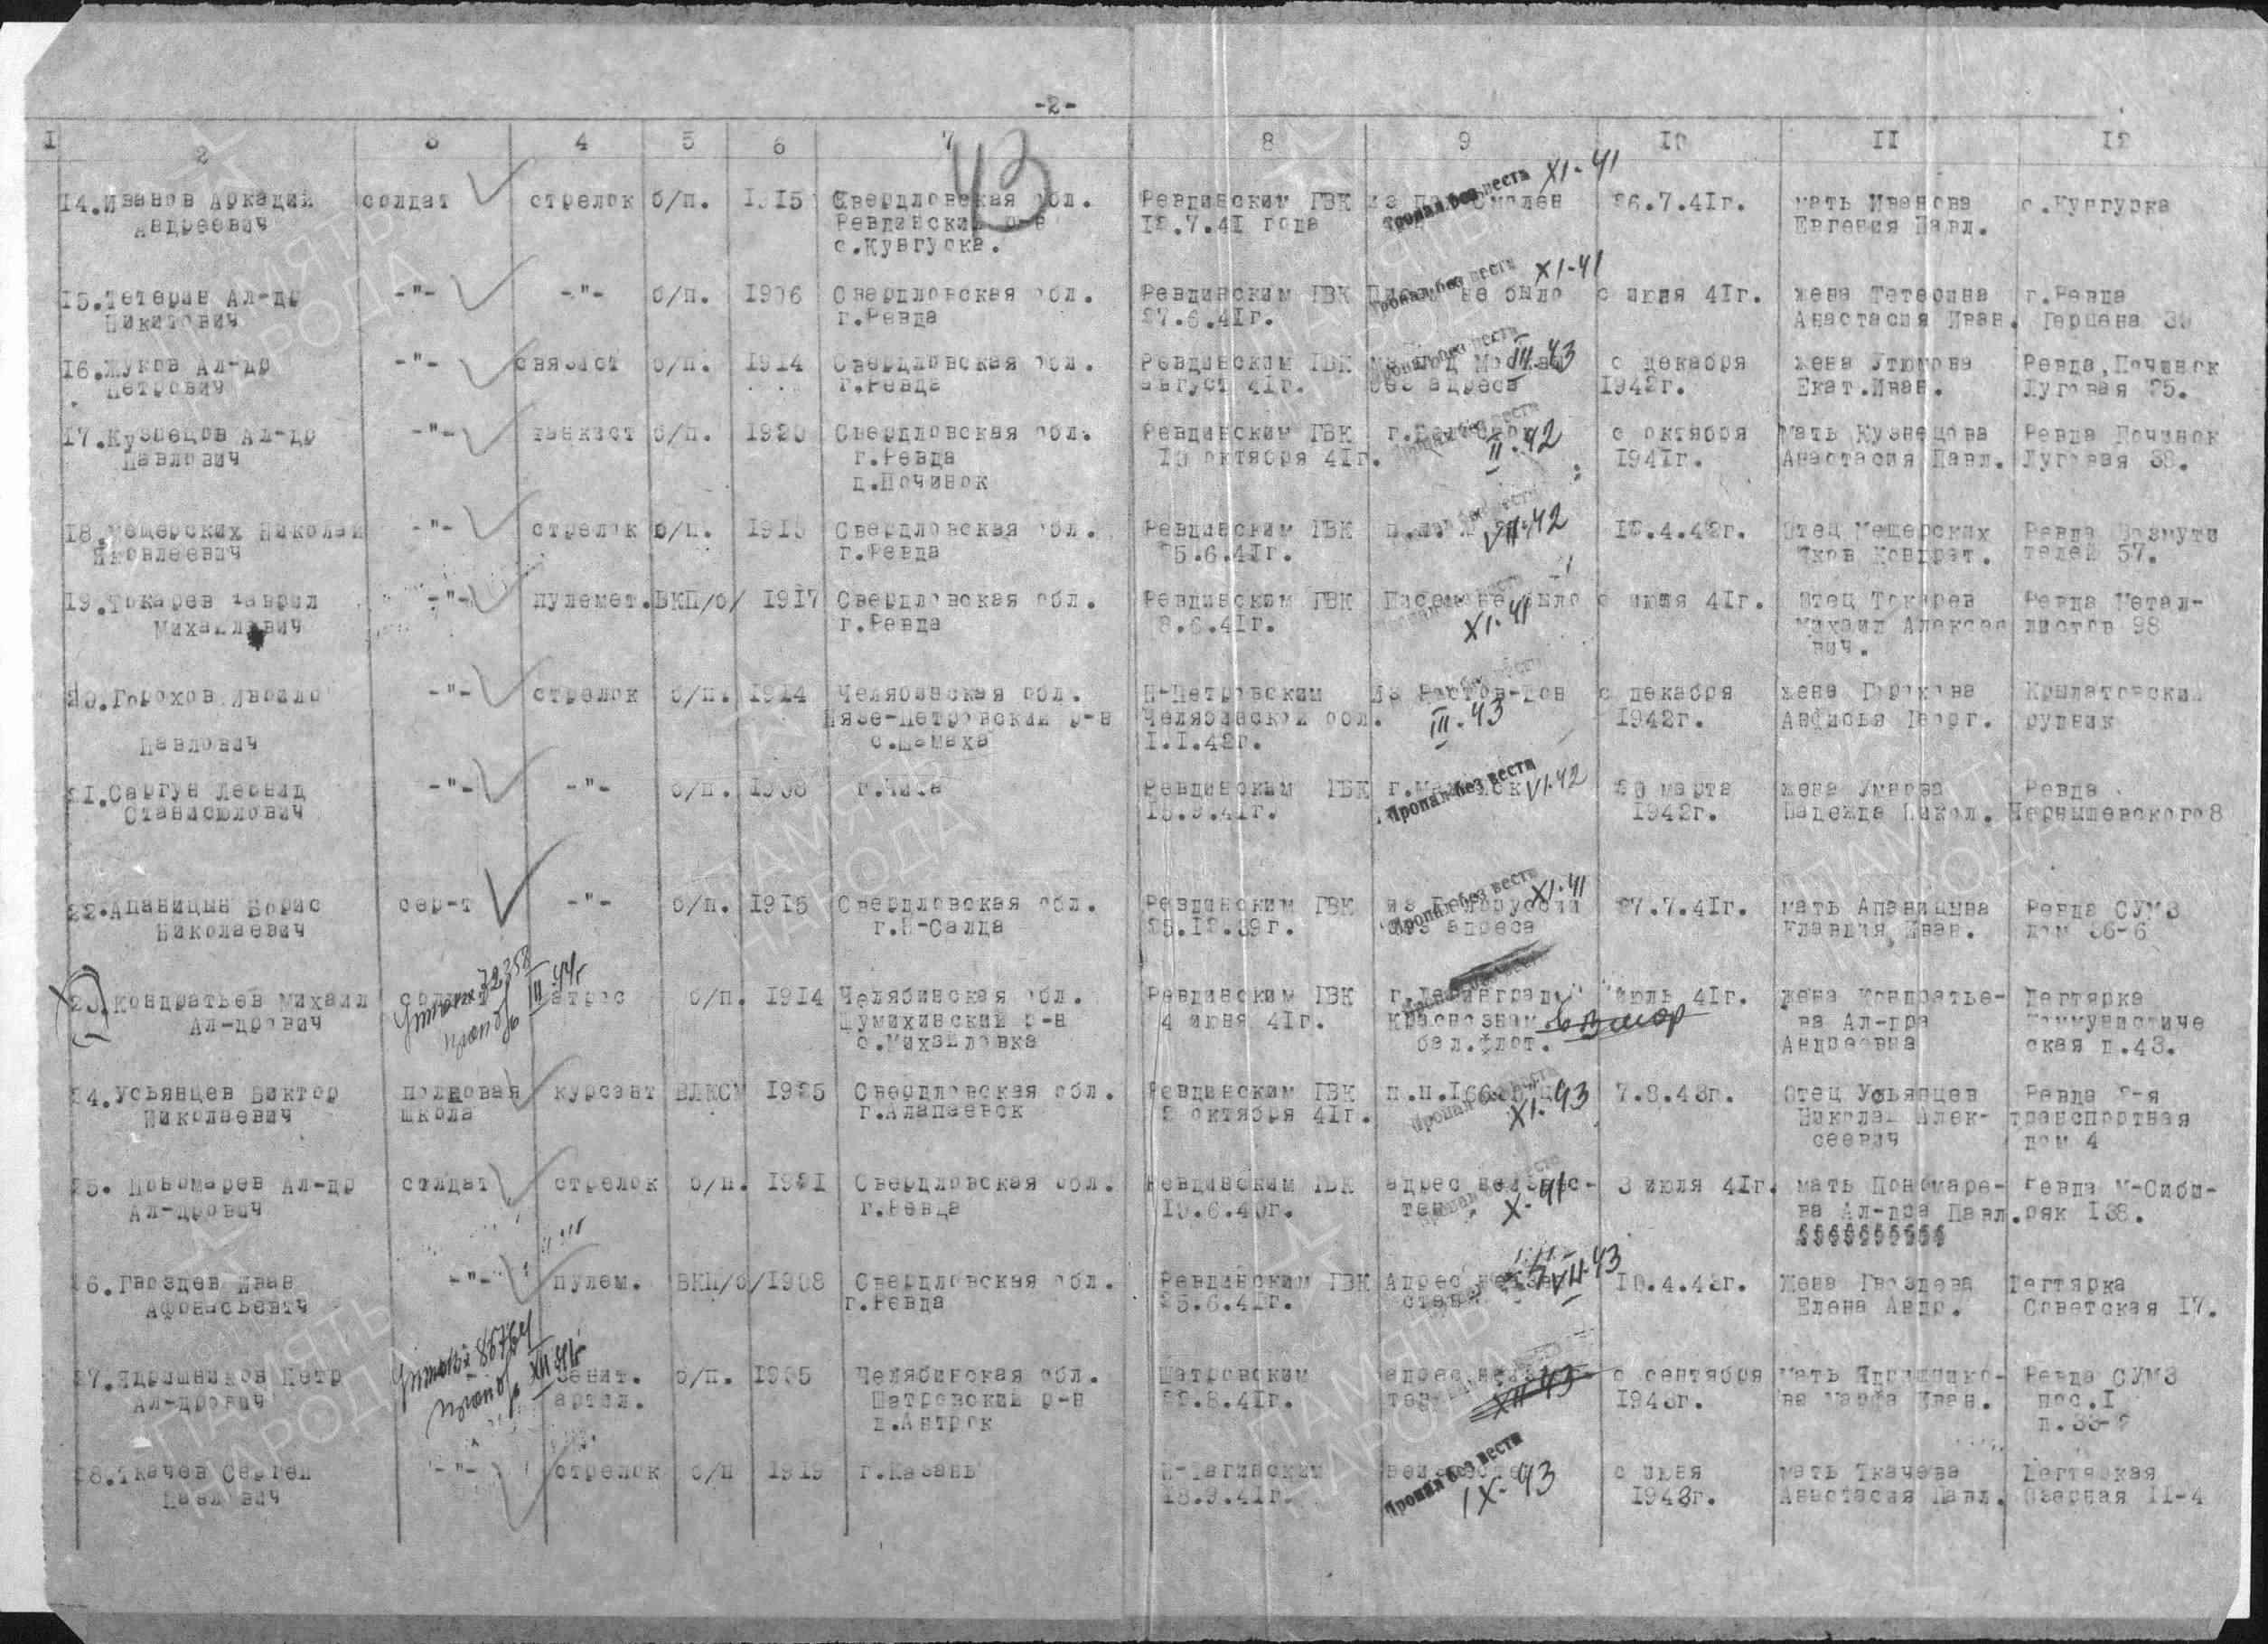 -2-
I 2 3 4 5 6 7 8 9 10 II 12
43
14.Иванов Аркадий солдат стрелок б/п. 1915 Свердловская обл. Ревдинским ГВК из Смолен 26.7.41г. мать Иванова с.Кунгурка
Андреевич Ревдинский р-н 12.7.41 года Евгения Павл.
с.Кунгурка.
Пропал без вести XI-41
15.Тетерин Ал-др -"- -"- б/п. 1906 Свердловская обл. Ревдинским ГВК Писем не было с июня 41г. жена Тетерина г.Ревда
Никитович г.Ревда 27.6.41г. Анастасия Иван. Герцена
Пропал без вести XI-41
16.Жуков Ал-др -"- связист б/п. 1914 Свердловская обл. Ревдинским ГВК с декабря жена Утюгова Ревда,Починок
Петрович г.Ревда август 41г. без адреса 1942г. Екат.Иван. Луговая 25.
Пропал без вести III-43
17.Кузнецов Ал-др -"- танкист б/п. 1920 Свердловская обл. Ревдинским ГВК с октября мать Кузнецова Ревда Починок
Павлович г.Ревда 10 октября 41г. 1941г. Анастасия Павл. Луговая 38.
д.Починок
II-42
18.Мещерских Николай -"- стрелок б/п. 1915 Свердловская обл. Ревдинским ГВК 4.42г. Отец Мещерских Ревда Возмути
Яковлеевич г.Ревда 25.6.41г. Яков Кондрат. телей 57.
VII-42
19.Токарев Гаврил -"- пулемет. ВКП/б/ 1917 Свердловская обл. Ревдинским ГВК Писем не было с июля 41г. Отец Токарев Ревда Метал-
Михайлович г.Ревда 8.6.41г. Михаил Алексее листов 98
вич.
XI-41
20.Горохов Ивойло -"- стрелок б/п. 1914 Челябинская обл. Н-Петровским Из Ростов-Дон с декабря жена Горохова Крылатовский
Нязе-Петровский р-н Челябинской обл. 1942г. Анфисья Георг. рудник
Павлович с.Шемаха 1.1.42г.
III-43
21.Саргун Леонид -"- -"- б/п. 1908 г.Чита Ревдинским ГВК 20 марта жена Умнова Ревда
Станисюлович 15.9.41г. 1942г. Надежда Никол. Чернышевского 8
Пропал без вести VI-42
22.Апаницын Борис сер-т -"- б/п. 1915 Свердловская обл. Ревдинским ГВК из Белоруссии 27.7.41г. мать Апаницына Ревда СУМЗ
Николаевич г.Н-Салда 25.12.39г. без адреса Клавдия Иван. дом 36-6
Пропал без вести XI-41
23.Кондратьев Михаил солдат матрос б/п. 1914 Челябинская обл. Ревдинским ГВК г.Ленинград июль 41г. жена Кондратье- Дегтярка
Ал-дрович Шумихинский р-н 4 июня 41г. Краснознам. ва Ал-дра Коммунистиче
с.Михайловка бал.флот. Андреевна ская д.43.
72358 III-44г
24.Усьянцев Виктор полковая курсант ВЛКСМ 1925 Свердловская обл. Ревдинским ГВК 7.8.43г. Отец Усьянцев Ревда 2-я
Николаевич школа г.Алапаевск 2 октября 41г. Николай Алек- транспортная
сеевич дом 4
Пропал без вести XI-43
25. Пономарев Ал-др солдат стрелок б/п. 1921 Свердловская обл. Ревдинским ГВК адрес неизвес- 3 июля 41г. мать Пономаре- Ревда М-Сиби-
Ал-дрович г.Ревда 10.6.40г. тен ва Ал-дра Павл. ряк 138.
X-41
26.Гвоздев Иван -"- пулем. ВКП/б/ 1908 Свердловская обл. Ревдинским ГВК Адрес неизве 10.4.43г. Жена Гвоздева Дегтярка
Афонасьевтч г.Ревда 25.6.41г. стен Елена Андр. Советская 17.
VII-43
27.Ядришников Петр зенит. б/п. 1905 Челябинская обл. Шатровским адрес неизвес с сентября мать Ядришнико- Ревда СУМЗ
Ал-дрович артил. Шатровский р-н 22.8.41г. тен 1943г. ва Марфа Иван. пос.1
д.Антрок д.33-2
XII-43
28.Ткачев Сергей -"- стрелок б/п 1919 г.Казань Н-Тагинским неизвестен с июня мать Ткачева Дегтярская
Павлович 18.9.41г. 1943г. Анастасия Павл. Озерная 11-4
Пропал без вести IX-43
ПАМЯТЬ НАРОДА